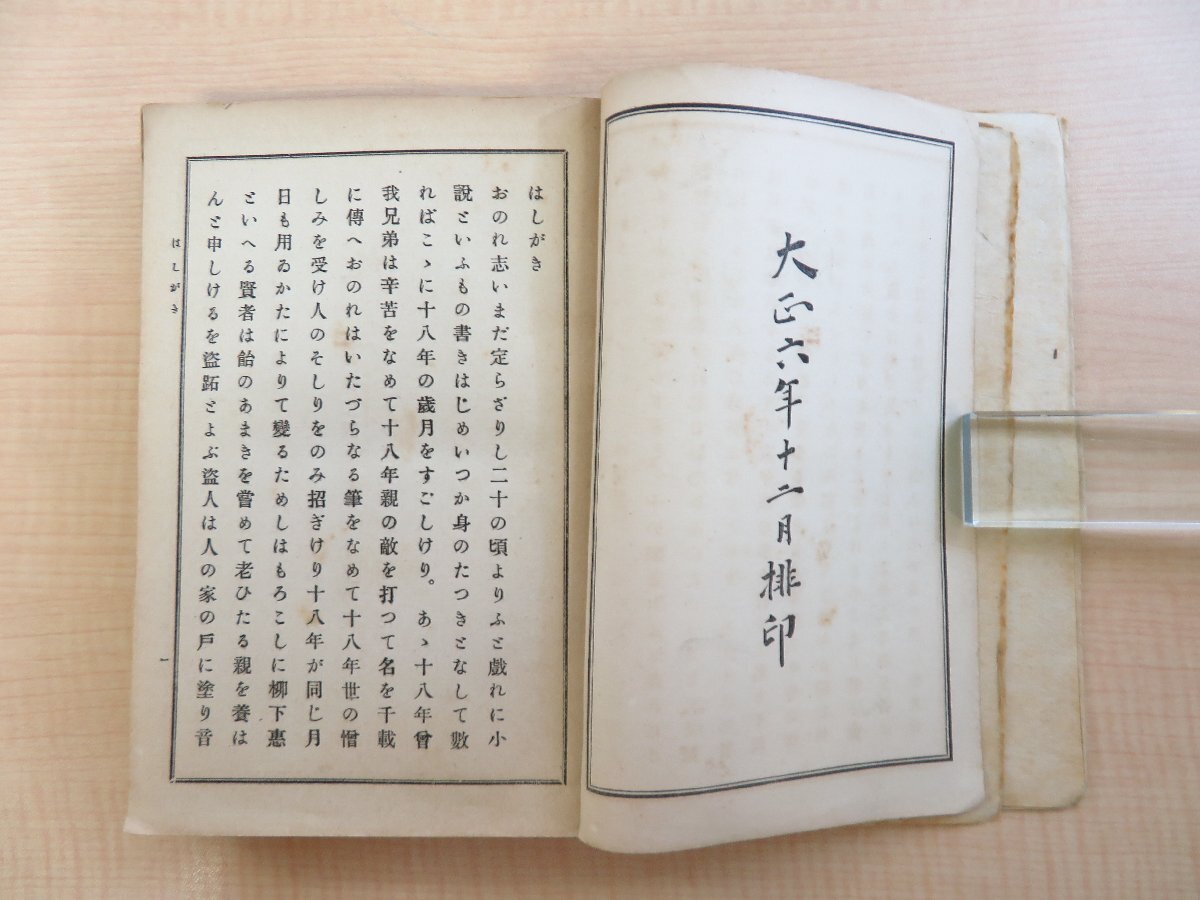 大正六年十二月排印
はしがき
おのれ志いまだ定らざりし二十の頃よりふと戯れに小
說といふもの書きはじめいつか身のたつきとなして數
ればこゝに十八年の歲月をすごしけり。あゝ十八年曾
我兄弟は辛苦をなめて十八年親の敵を打つて名を千載
に傳へおのれはいたづらなる筆をなめて十八年世の憎
しみを受け人のそしりをのみ招ぎけり十八年が同じ月
日も用ゐかたによりて變るためしはもろこしに柳下惠
といへる賢者は飴のあまきを嘗めて老ひたる親を養は
んと申しけるを盜跖とよぶ盜人は人の家の戶に塗り音
はしがき
一